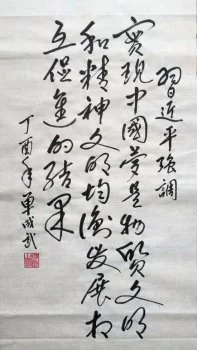 習近平強調
實現中國夢是物質文明
和精神文明均衡發展相
互促進的結果
丁酉年單成武